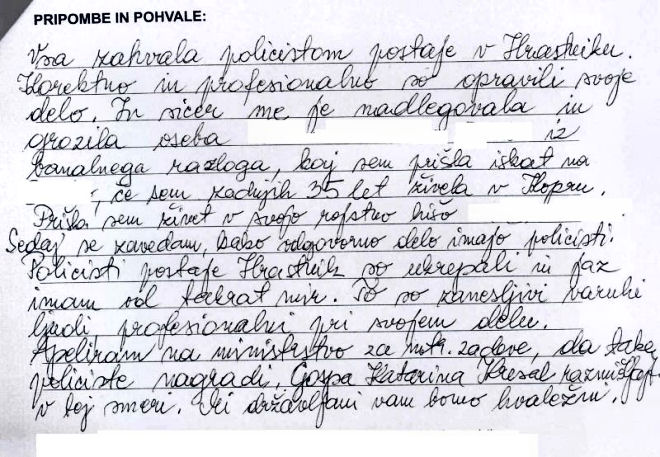 PRIPOMBE IN POHVALE:
Vsa zahvala policistom postaje v Hrastniku.
Korektno in profesionalno so opravili svoje
delo. In sicer me je nadlegovala in
grozila oseba iz
banalnega razloga, kaj sem prišla iskat na
, če sem zadnjih 35 let živela v Kopru.
Prišla sem živet v svojo rojstno hišo
Sedaj se zavedam, kako odgovorno delo imajo policisti.
Policisti postaje Hrastnik so ukrepali in jaz
imam od takrat mir. To so zanesljivi varuhi
ljudi profesionalni pri svojem delu.
Apeliram na ministrstvo za notr. zadeve, da take
policiste nagradi. Gospa Katarina Kresal razmišljajte
v tej smeri. Vsi državljani vam bomo hvaležni.